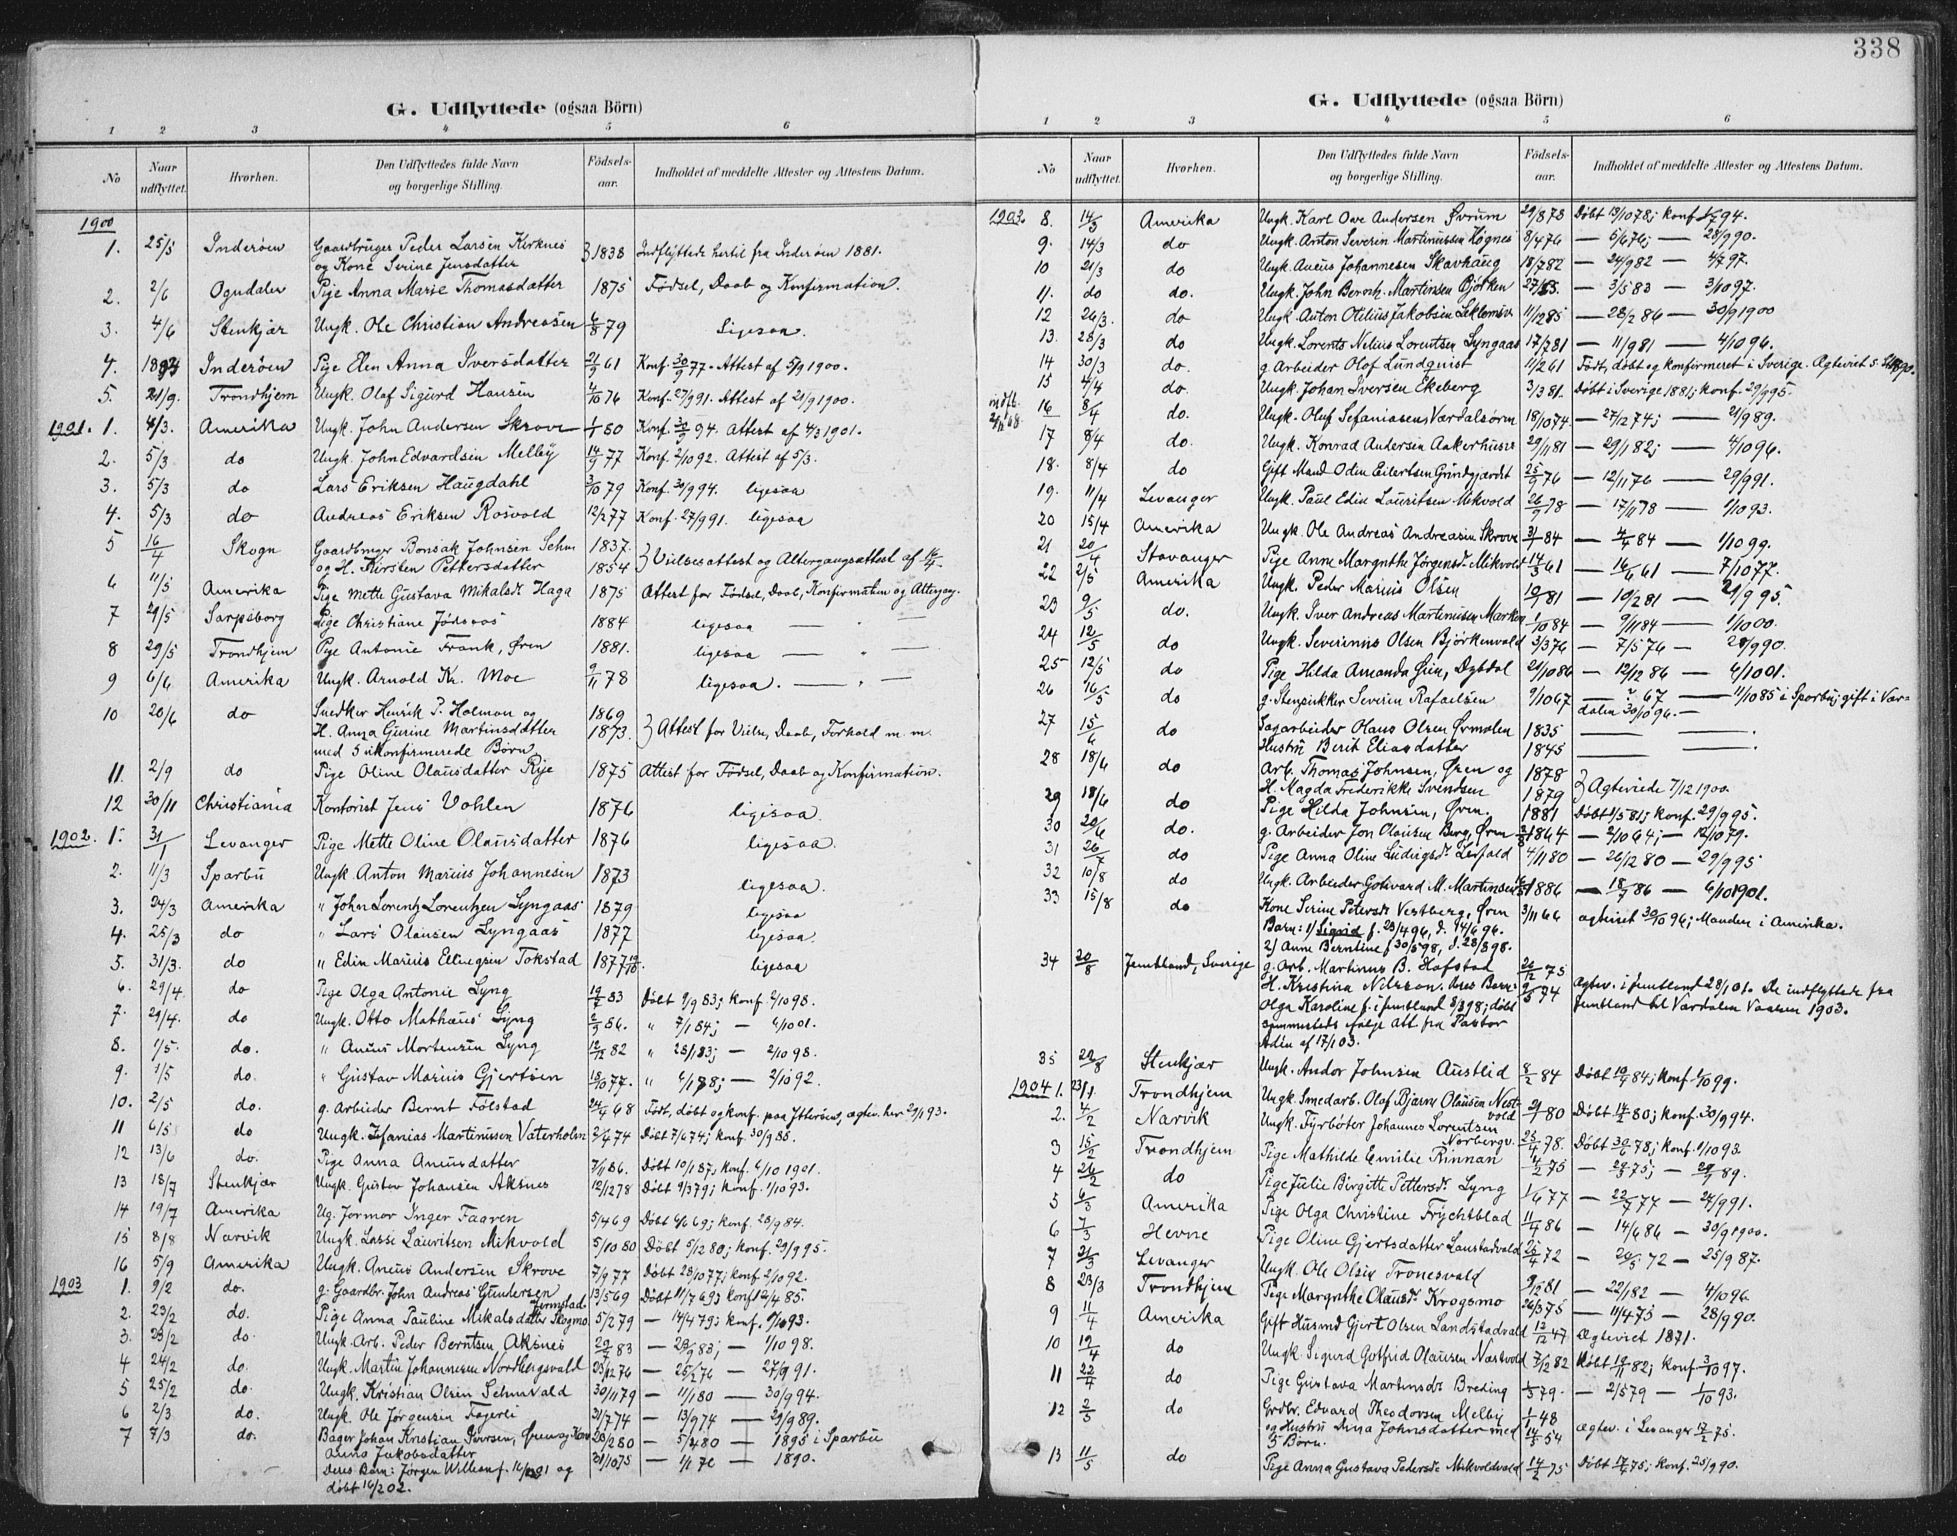 338
G. Udflyttede (ogsaa Börn)
1 2 3 4 5 6
No Naar udflyttet. Hvorhen. Den Udflyttedes fulde Navn og borgerlige Stilling. Födsels-aar. Indholdet af meddelte Attester og Attestens Datum.
1900
1. 25/3 Inderøen Gaardbruger Peder Larsen Kirknes } 1838 Indflyttede hertil fra Inderøen 1881.
og Kone Serine Jensdatter
2. 2/6 Ogndalen Pige Anna Marie Thomasdatter 1875 Fødsel, Daab og Konfirmation.
3. 4/6 Stenkjær Ungk. Ole Christian Andreasen 6/8 79 Ligesaa.
4. Inderøen Pige Elen Anna Iversdatter 21/9 61 Konf. 30/9 77. Attest af 5/9 1900.
5. 21/9. Trondhjem Ungk. Olaf Sigurd Hansen 4/10 76 Konf. 27/9 91. Attest af 21/9 1900.
1901. 1. 4/3. Amerika Ungk. John Andersen Skrove 1/1 80 Konf. 30/9 94. Attest af 4/3 1901.
2. 5/3 do Ungk. John Edvardsen Melby 14/9 77 Konf. 2/10 92. Attest af 5/3.
3. 5/3 do Lars Eriksen Haugdahl 3/10 79 Konf. 30/9 94. ligesaa
4. 5/3 do Andreas Eriksen Rosvold 12/2 77 Konf. 27/9 91. ligesaa
5 16/4 Skogn Gaardbruger Bonsak Johnsen 1837. } Vielsesattest og Altergangsattest af 16/4.
og H. Kirsten Pettersdatter 1854
6 11/5 Amerika Pige Mette Gustava Mikalsdt Haga 1875 Attest for Fødsel, Daab, Konfirmation og Altergang.
7 29/5 Sarpsborg Pige Christiane Jødsaas 1884 ligesaa — " —
8 29/5 Trondhjem Pige Antonie Frank, Øren 1881. ligesaa — " —
9 6/6 Amerika Ungk. Arnold Kr. Moe 9/11 78 ligesaa. — " —
10 20/6 do Snedker Henrik P. Holman og 1869
H. Anna Gurine Martinsdatter 1873. } Attest for Vielse, Daab, Forhold m. m.
med 5 ukonfirmerede Børn
11. 2/9 do Pige Oline Olausdatter Rye 1875 Attest for Fødsel, Daab og Konfirmation.
12 30/11 Christiania Kontorist Jens Vohlen 1876 ligesaa.
1902. 1. 31/1 Levanger Pige Mette Oline Olausdatter 1876 ligesaa.
2. 11/3 Sparbu Ungk. Anton Marius Johannesen 1873 ligesaa.
3. 24/3 Amerika " John Lorentz Lorentzen Lyngaas 1879 ligesaa
4. 25/3 do " Lars Olausen Lyngaas 1877 ligesaa.
5. 31/3. do " Edin Marius Ellingsen Tokstad 1877 ligesaa
6. 29/4. do Pige Olga Antonie Lyng 19/7 83 Døbt 9/9 83; konf. 2/10 98.
7. 29/4. do Ungk. Otto Mathæus Lyng Døbt — 6/10 01.
8. 1/5. do. " Aneus Mortensen Lyng 12/12 82 " 28/1 83; — 2/10 98.
9. 1/5 do. " Gustav Marius Gjertsen 18/10 77. " 6/1 78; — 2/10 92.
10. 2/5 do. g. Arbeider Bernt Følstad 24/9 68 Født, døbt og konf. paa Ytterøen, ægtev. her 2/11 93.
11 6/5 do Ungk. Sefanias Martinusen Vaterholm 2/4 74 Døbt 7/6 74; konf. 30/9 88.
12 13/6 do. Pige Anna Aneusdatter 7/1 86. Døbt 10/1 87; konf. 6/10 1901.
13 18/7 Stenkjær Ungk. Gustav Johansen Aksnes 12/12 78 Døbt 9/3 79; konf. 1/10 93.
14 19/7 Amerika Ug. Jormor Inger Faaren 5/4 69 Døbt 6/6 69; konf. 28/9 84.
15 8/8 Narvik Ungk. Lasse Lauritsen Mikvold 5/10 80 Døbt 5/12 80; konf. 29/9 95.
16 5/9 Amerika Ungk. Aneus Andersen Skrove 7/9 77 Døbt 28/10 77; konf. 2/10 92.
1903 1. 9/2 do. g. Gaardbr. John Andreas Gundersen Jermstad 13/5 69 Døbt 11/7 69; konf 12/4 85.
2. 23/2 do. Pige Anna Pauline Mikalsdatter Skogmo 5/2 79 — 14/4 79; konf. 1/10 93.
3. 23/2 do. Ungk. Arb. Peder Berntsen Aksnes 22/7 83 — 23/9 83; — 1/10 98.
4 24/2 do. Ungk. Martin Johannesen Nordbergsvald 23/12 76 — 25/2 76 — 27/9 91.
5 25/2 do. Ungk. Kristian Olsen 30/11 79 — 11/1 80 — 30/9 94.
6 2/3 do. Ungk. Ole Jørgensen Fagerli 31/7 74 — 13/9 74 — 29/9 89.
7 7/3 do. Bager Johan Kristian Iversen, Øren og Kone 23/2 80 — 5/4 80 — 1895 i Sparbu
Anna Jakobsdatter 21/10 75 — — 1890.
Deres Barn: Jørgen William f. og
døbt 16/2 02.
G. Udflyttede (ogsaa Börn)
1 2 3 4 5 6
No Naar udflyttet. Hvorhen. Den Udflyttedes fulde Navn og borgerlige Stilling. Födsels-aar. Indholdet af meddelte Attester og Attestens Datum.
1903. 8. 14/3 Amerika Ungk. Karl Ove Andersen Øvrum 29/8 78 Døbt 13/10 78; konf. 94.
9. 14/3 do Ungk. Anton Severin Martinussen Høgnes 8/4 76 — 5/6 76; — 28/9 90.
10 21/3 do Ungk. Aneus Johannesen Skavhaug 18/7 82 — 24/9 82 — 4/7 97.
11. do do. Ungk. John Bernh. Martinsen Bjørken — 3/5 83 — 3/10 97.
12 26/3. do Ungk. Anton Otilius Jakobsen 11/12 85 — 28/2 86 — 30/9 1900
13. 28/3 do Ungk. Lorents Nelius Lorentsen Lyngaas 17/7 81 — 11/9 81 — 4/10 96.
14 30/3 do. g. Arbeider Olof Lundquist 11/2 61 Født, døbt og konfirmeret i Sverige. Ægteviet
15 4/4 do. Ungk. Johan Iversen Ekeberg 3/3 81. Døbt i Sverige 1881; konf. 29/9 95.
indfl.
16 8/4 do. Ungk. Oluf Sefaniasen Værdalsøren 18/10 74 — 27/12 74; — 29/9 89.
17 8/4 do. Ungk. Konrad Andersen Aakerhusvet 29/11 81 — 29/1 82; — 4/10 96.
18. 8/4 do Gift Mand Oden Eilertsen Grundgjærdt 25/9 76 — 12/11 76 — 29/9 91.
19. 11/4 Levanger Ungk. Paul Edin Lauritsen Mikvold 26/9 78 — 17/11 78 — 1/10 93.
20 15/4 Amerika Ungk. Ole Andreas Andreasen Skrove 3/1 84 — 84 — 1/10 99.
21 20/4 Stavanger Pige Anne Margrethe Jørgensdt. Mikvold 14/3 61 — 16/6 61 — 7/10 77.
22 2/5 Amerika Ungk. Peder Marius Olsen 81 — 10/2 81 — 29/9 95.
23 9/5 do. Ungk. Iver Andreas Martinusen Marken 1/10 84 — 9/11 84 — 1/10 00.
24 12/5 do Ungk. Severinus Olsen Bjørkenvold 3/3 76 — 7/5 76 — 28/9 90.
25 12/5 do Pige Hilda Amanda Øien, Dybdal 21/10 86 — 12/12 86 — 6/10 01.
26 16/5 do g. Stenpikker Severin Rafaelsen 9/10 67 — ? 67 — 11/10 85 i Sparbu, gift i Vær-
dalen 30/10 96. —
27 15/6 do Sagarbeider Hans Olsen Ørmelen 1835
Hustru Berit Eliasdatter 1845
28 18/6 do Arb. Thomas Johnsen, Øren og 1878
H. Magda Frederikke Svendsen 1879 } Ægteviede 7/12 1900.
29 18/6 do Pige Hilda Johnsen, Øren. 1881 Døbt 1/5 81; konf. 29/9 95.
30 20/6 do. g. Arbeider Jon Olausen Berg, Øren 1864 — 2/10 64; — 12/10 79.
31 26/7 do Pige Anna Oline Ludvigsdt. Leirfald 4/11 80 — 26/12 80 — 29/9 95
32 10/8 do Ungk. Arbeider Gotvard M. Martinsen 1886 — 18/7 86 — 6/10 1901.
33 15/8 do Kone Serine Petersdt. Vestberg, Øren 3/11 66 ægteviet 30/10 96; Manden i Amerika.
Barn: 1) Sigrid f. 23/4 96, d. 14/6 96.
2) Anne Berntine f. 30/5 98, d. 28/8 98.
34 20/8 Jemtland, Sverige g. Arb. Martinus B. Hofstad 26/12 75
H. Kristina Nilsson. Deres Barn: 9/5 74 Ægtev. i Jemtland 28/1 01. De indflyttede fra
Olga Karoline f. i Jemtland 8/3 98; døbt Jemtland til Værdalen Vaaren 1903.
sammesteds ifølge Att. fra Pastor
Adén af 17/1 03.
35 22/8 Stenkjær Ungk. Andor Johnsen Austlid 8/2 84 Døbt 19/4 84; konf. 1/10 99.
1904 1. 23/1 Trondhjem Ungk. Smedarb. Olaf Bjarne Olausen Nest-
vold 80 Døbt 80; konf. 30/9 94.
2. 4/2 Narvik Ungk. Fyrbøter Johannes Lorentsen
Norbergv. 23/4 78. Døbt 30/6 78; konf. 1/10 93
3 15/2 Trondhjem Pige Mathilde Emilie Rinnan 4/2 75 — 75; — 29/9 89.
4 26/2 do Pige Julie Birgitte Pettersdt. Lyng 1/6 77 — 22/7 77 — 27/9 91.
5 6/3 Amerika Pige Olga Christine Frychtblad 11/4 86 — 14/6 86 — 30/9 1900.
6 7/3 Hevne Pige Oline Gjertsdatter Landstadvold 25/4 72 — 26/5 72 — 25/9 87.
7 21/3 Levanger Ungk. Ole Olsen Tronesvald 9/12 81 — 22/1 82 — 4/10 96.
8 23/3 Trondhjem Pige Margrethe Olausdt. Krogsmo 26/3 75 — 11/4 75 — 28/9 90.
9 11/4 Amerika Gift Husmd Gjert Olsen Landstadvald 12/12 47 Ægteviet 1871.
10 19/4 do Ungk. Sigurd Gotfrid Olausen Næstvold 7/12 82 Døbt 82; konf. 3/10 97.
11 22/4 do Pige Gustava Martinsdt Breding 1/3 79. — 2/5 79 — 1/10 93.
12 2/5 do Grdbr. Edvard Theodorsen Melby 1/1 48
og Hustru Dina Johnsdatter med 14/5 54 Ægtev. i Levanger 17/2 75.
5 Børn.
13 11/5 do Pige Anna Gustava Pedersdt Mikvoldvald 14/2 75 Døbt 75; konf. 25/9 90.